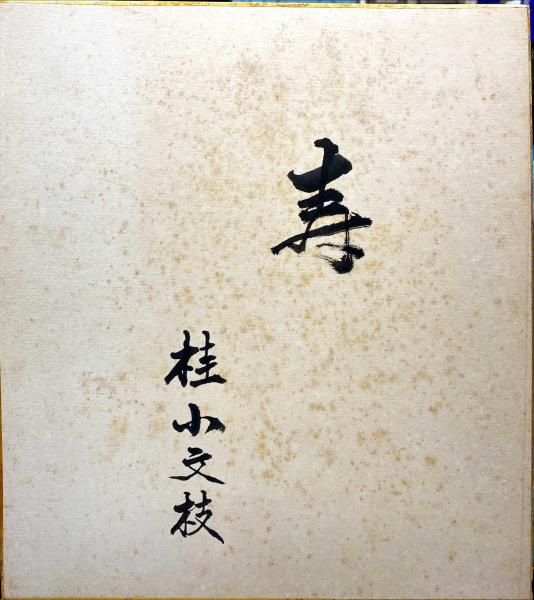 寿
桂小文枝